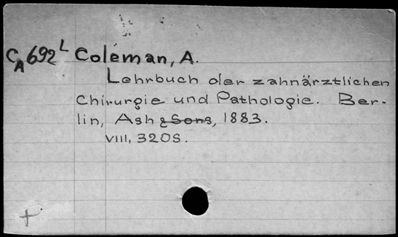 CA692L Coleman, A.
Lehrbuch der zahnärztlichen
Chirurgie und Pathologie. Ber-
lin, Ash & Sons, 1883.
VIII, 320S.
+